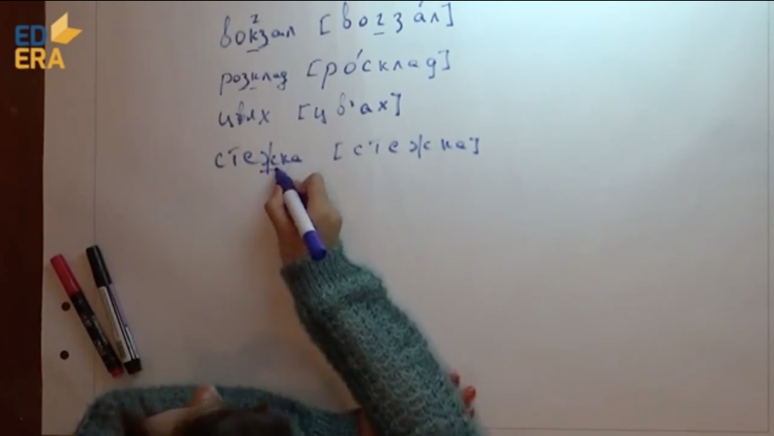 ED
ERA
вокзал [вогза́л]
розклад [ро́склад]
цвях [цв'ах]
стежка [стежка]